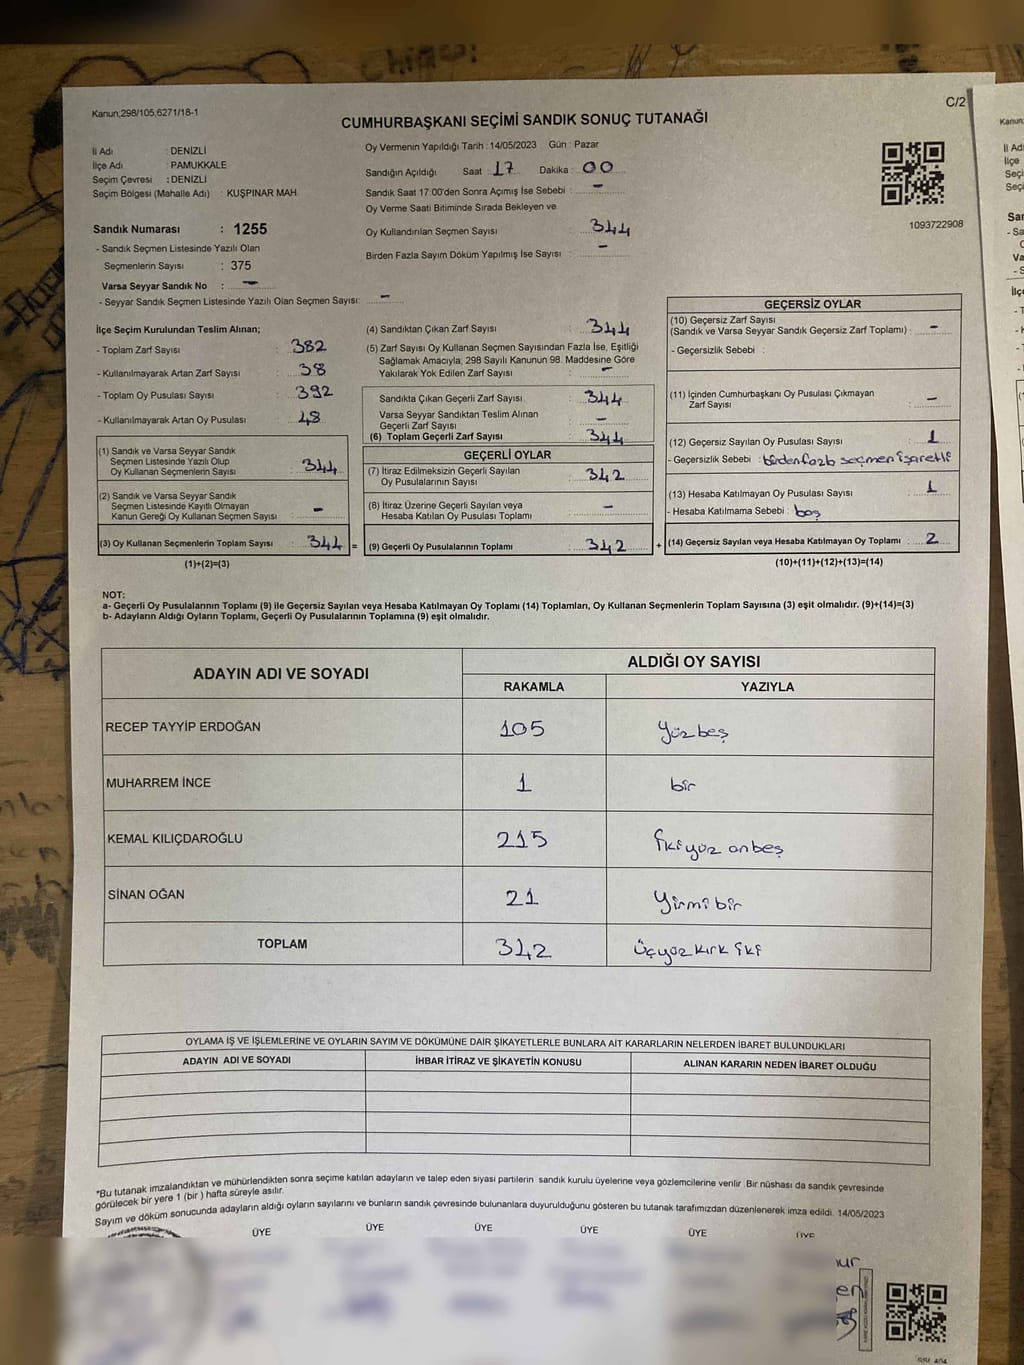 Kanun;298/105,6271/18-1
C/2
CUMHURBAŞKANI SEÇİMİ SANDIK SONUÇ TUTANAĞI
İl Adı : DENİZLİ
İlçe Adı : PAMUKKALE
Seçim Çevresi : DENİZLİ
Seçim Bölgesi (Mahalle Adı) : KUŞPINAR MAH.
Oy Vermenin Yapıldığı Tarih : 14/05/2023 Gün : Pazar
Sandığın Açıldığı Saat : 17 Dakika : 00
Sandık Saat 17:00'den Sonra Açımış İse Sebebi : -
Oy Verme Saati Bitiminde Sırada Bekleyen ve
Oy Kullandırılan Seçmen Sayısı : 344
Birden Fazla Sayım Döküm Yapılmış İse Sayısı : -
1093722908
Sandık Numarası : 1255
- Sandık Seçmen Listesinde Yazılı Olan
Seçmenlerin Sayısı : 375
Varsa Seyyar Sandık No : -
- Seyyar Sandık Seçmen Listesinde Yazılı Olan Seçmen Sayısı: -
İlçe Seçim Kurulundan Teslim Alınan;
- Toplam Zarf Sayısı : 382
- Kullanılmayarak Artan Zarf Sayısı : 38
- Toplam Oy Pusulası Sayısı : 392
- Kullanılmayarak Artan Oy Pusulası : 48
(1) Sandık ve Varsa Seyyar Sandık
Seçmen Listesinde Yazılı Olup
Oy Kullanan Seçmenlerin Sayısı : 344
(2) Sandık ve Varsa Seyyar Sandık
Seçmen Listesinde Kayıtlı Olmayan
Kanun Gereği Oy Kullanan Seçmen Sayısı : -
(3) Oy Kullanan Seçmenlerin Toplam Sayısı : 344 =
(1)+(2)=(3)
(4) Sandıktan Çıkan Zarf Sayısı : 344
(5) Zarf Sayısı Oy Kullanan Seçmen Sayısından Fazla İse, Eşitliği
Sağlamak Amacıyla; 298 Sayılı Kanunun 98. Maddesine Göre
Yakılarak Yok Edilen Zarf Sayısı : -
Sandıkta Çıkan Geçerli Zarf Sayısı : 344
Varsa Seyyar Sandıktan Teslim Alınan
Geçerli Zarf Sayısı : -
(6) Toplam Geçerli Zarf Sayısı : 344
GEÇERLİ OYLAR
(7) İtiraz Edilmeksizin Geçerli Sayılan
Oy Pusulalarının Sayısı : 342
(8) İtiraz Üzerine Geçerli Sayılan veya
Hesaba Katılan Oy Pusulası Toplamı : -
(9) Geçerli Oy Pusulalarının Toplamı : 342 +
GEÇERSİZ OYLAR
(10) Geçersiz Zarf Sayısı
(Sandık ve Varsa Seyyar Sandık Geçersiz Zarf Toplamı) : -
- Geçersizlik Sebebi :
(11) İçinden Cumhurbaşkanı Oy Pusulası Çıkmayan
Zarf Sayısı : -
(12) Geçersiz Sayılan Oy Pusulası Sayısı : 1
- Geçersizlik Sebebi : birden fazla seçmen işaretli
(13) Hesaba Katılmayan Oy Pusulası Sayısı : 1
- Hesaba Katılmama Sebebi : boş
(14) Geçersiz Sayılan veya Hesaba Katılmayan Oy Toplamı : 2
(10)+(11)+(12)+(13)=(14)
NOT:
a- Geçerli Oy Pusulalarının Toplamı (9) ile Geçersiz Sayılan veya Hesaba Katılmayan Oy Toplamı (14) Toplamları, Oy Kullanan Seçmenlerin Toplam Sayısına (3) eşit olmalıdır. (9)+(14)=(3)
b- Adayların Aldığı Oyların Toplamı, Geçerli Oy Pusulalarının Toplamına (9) eşit olmalıdır.
ADAYIN ADI VE SOYADI ALDIĞI OY SAYISI
RAKAMLA YAZIYLA
RECEP TAYYİP ERDOĞAN 105 Yüz beş
MUHARREM İNCE 1 bir
KEMAL KILIÇDAROĞLU 215 İki yüz on beş
SİNAN OĞAN 21 Yirmi bir
TOPLAM 342 Üçyüz kırk iki
OYLAMA İŞ VE İŞLEMLERİNE VE OYLARIN SAYIM VE DÖKÜMÜNE DAİR ŞİKAYETLERLE BUNLARA AİT KARARLARIN NELERDEN İBARET BULUNDUKLARI
ADAYIN ADI VE SOYADI İHBAR İTİRAZ VE ŞİKAYETİN KONUSU ALINAN KARARIN NEDEN İBARET OLDUĞU
*Bu tutanak imzalandıktan ve mühürlendikten sonra seçime katılan adayların ve talep eden siyasi partilerin sandık kurulu üyelerine veya gözlemcilerine verilir .Bir nüshası da sandık çevresinde
görülecek bir yere 1 (bir ) hafta süreyle asılır.
Sayım ve döküm sonucunda adayların aldığı oyların sayılarını ve bunların sandık çevresinde bulunanlara duyurulduğunu gösteren bu tutanak tarafımızdan düzenlenerek imza edildi. 14/05/2023
ÜYE ÜYE ÜYE ÜYE ÜYE ÜYE